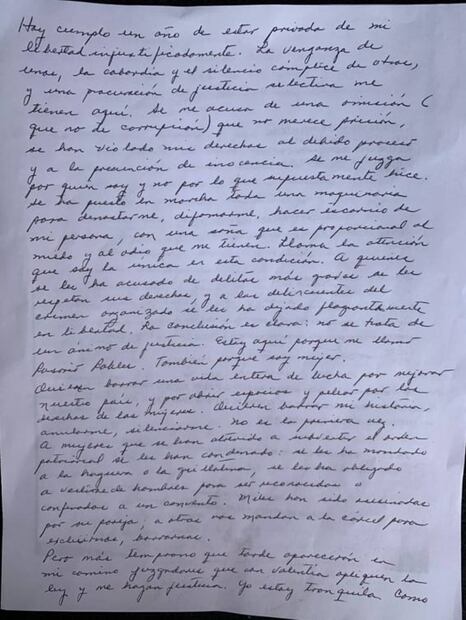 Hoy cumplo un año de estar privada de mi
libertad injustificadamente. La venganza de
unos, la cobardía y el silencio cómplice de otros,
y una procuración de justicia selectiva me
tienen aquí. Se me acusa de una omisión (
que no de corrupción) que no merece prisión,
se han violado mis derechos al debido proceso
y a la presunción de inocencia. Se me juzga
por quien soy y no por lo que supuestamente hice.
Se ha puesto en marcha toda una maquinaria
para denostarme, difamarme, hacer escarnio de
mi persona, con una saña que es proporcional al
miedo y al odio que me tienen. Llama la atención
que soy la única en esta condición. A quienes
se les ha acusado de delitos más graves se les
respetan sus derechos, y a los delincuentes del
crimen organizado se les ha dejado flagrantemente
en libertad. La conclusión es clara: no se trata de
un ánimo de justicia. Estoy aquí porque me llamo
Rosario Robles. También porque soy mujer.
Quieren borrar una vida entera de lucha por mejorar
nuestro país, y por abrir espacios y pelear por los
derechos de las mujeres. Quieren borrar mi historia,
anularme, silenciarme. No es la primera vez.
A mujeres que se han atrevido a subvertir el orden
patriarcal se les han condenado: se les ha mandado
a la hoguera o la guillotina, se les ha obligado
a vestirse de hombres para ser reconocidas o
confinadas a un convento. Miles han sido asesinadas
por su pareja; a otras nos mandan a la cárcel para
excluirnos, borrarnos.
Pero más temprano que tarde aparecerán en
mi camino juzgadores que con valentía apliquen la
ley y me hagan justicia. Yo estoy tranquila como